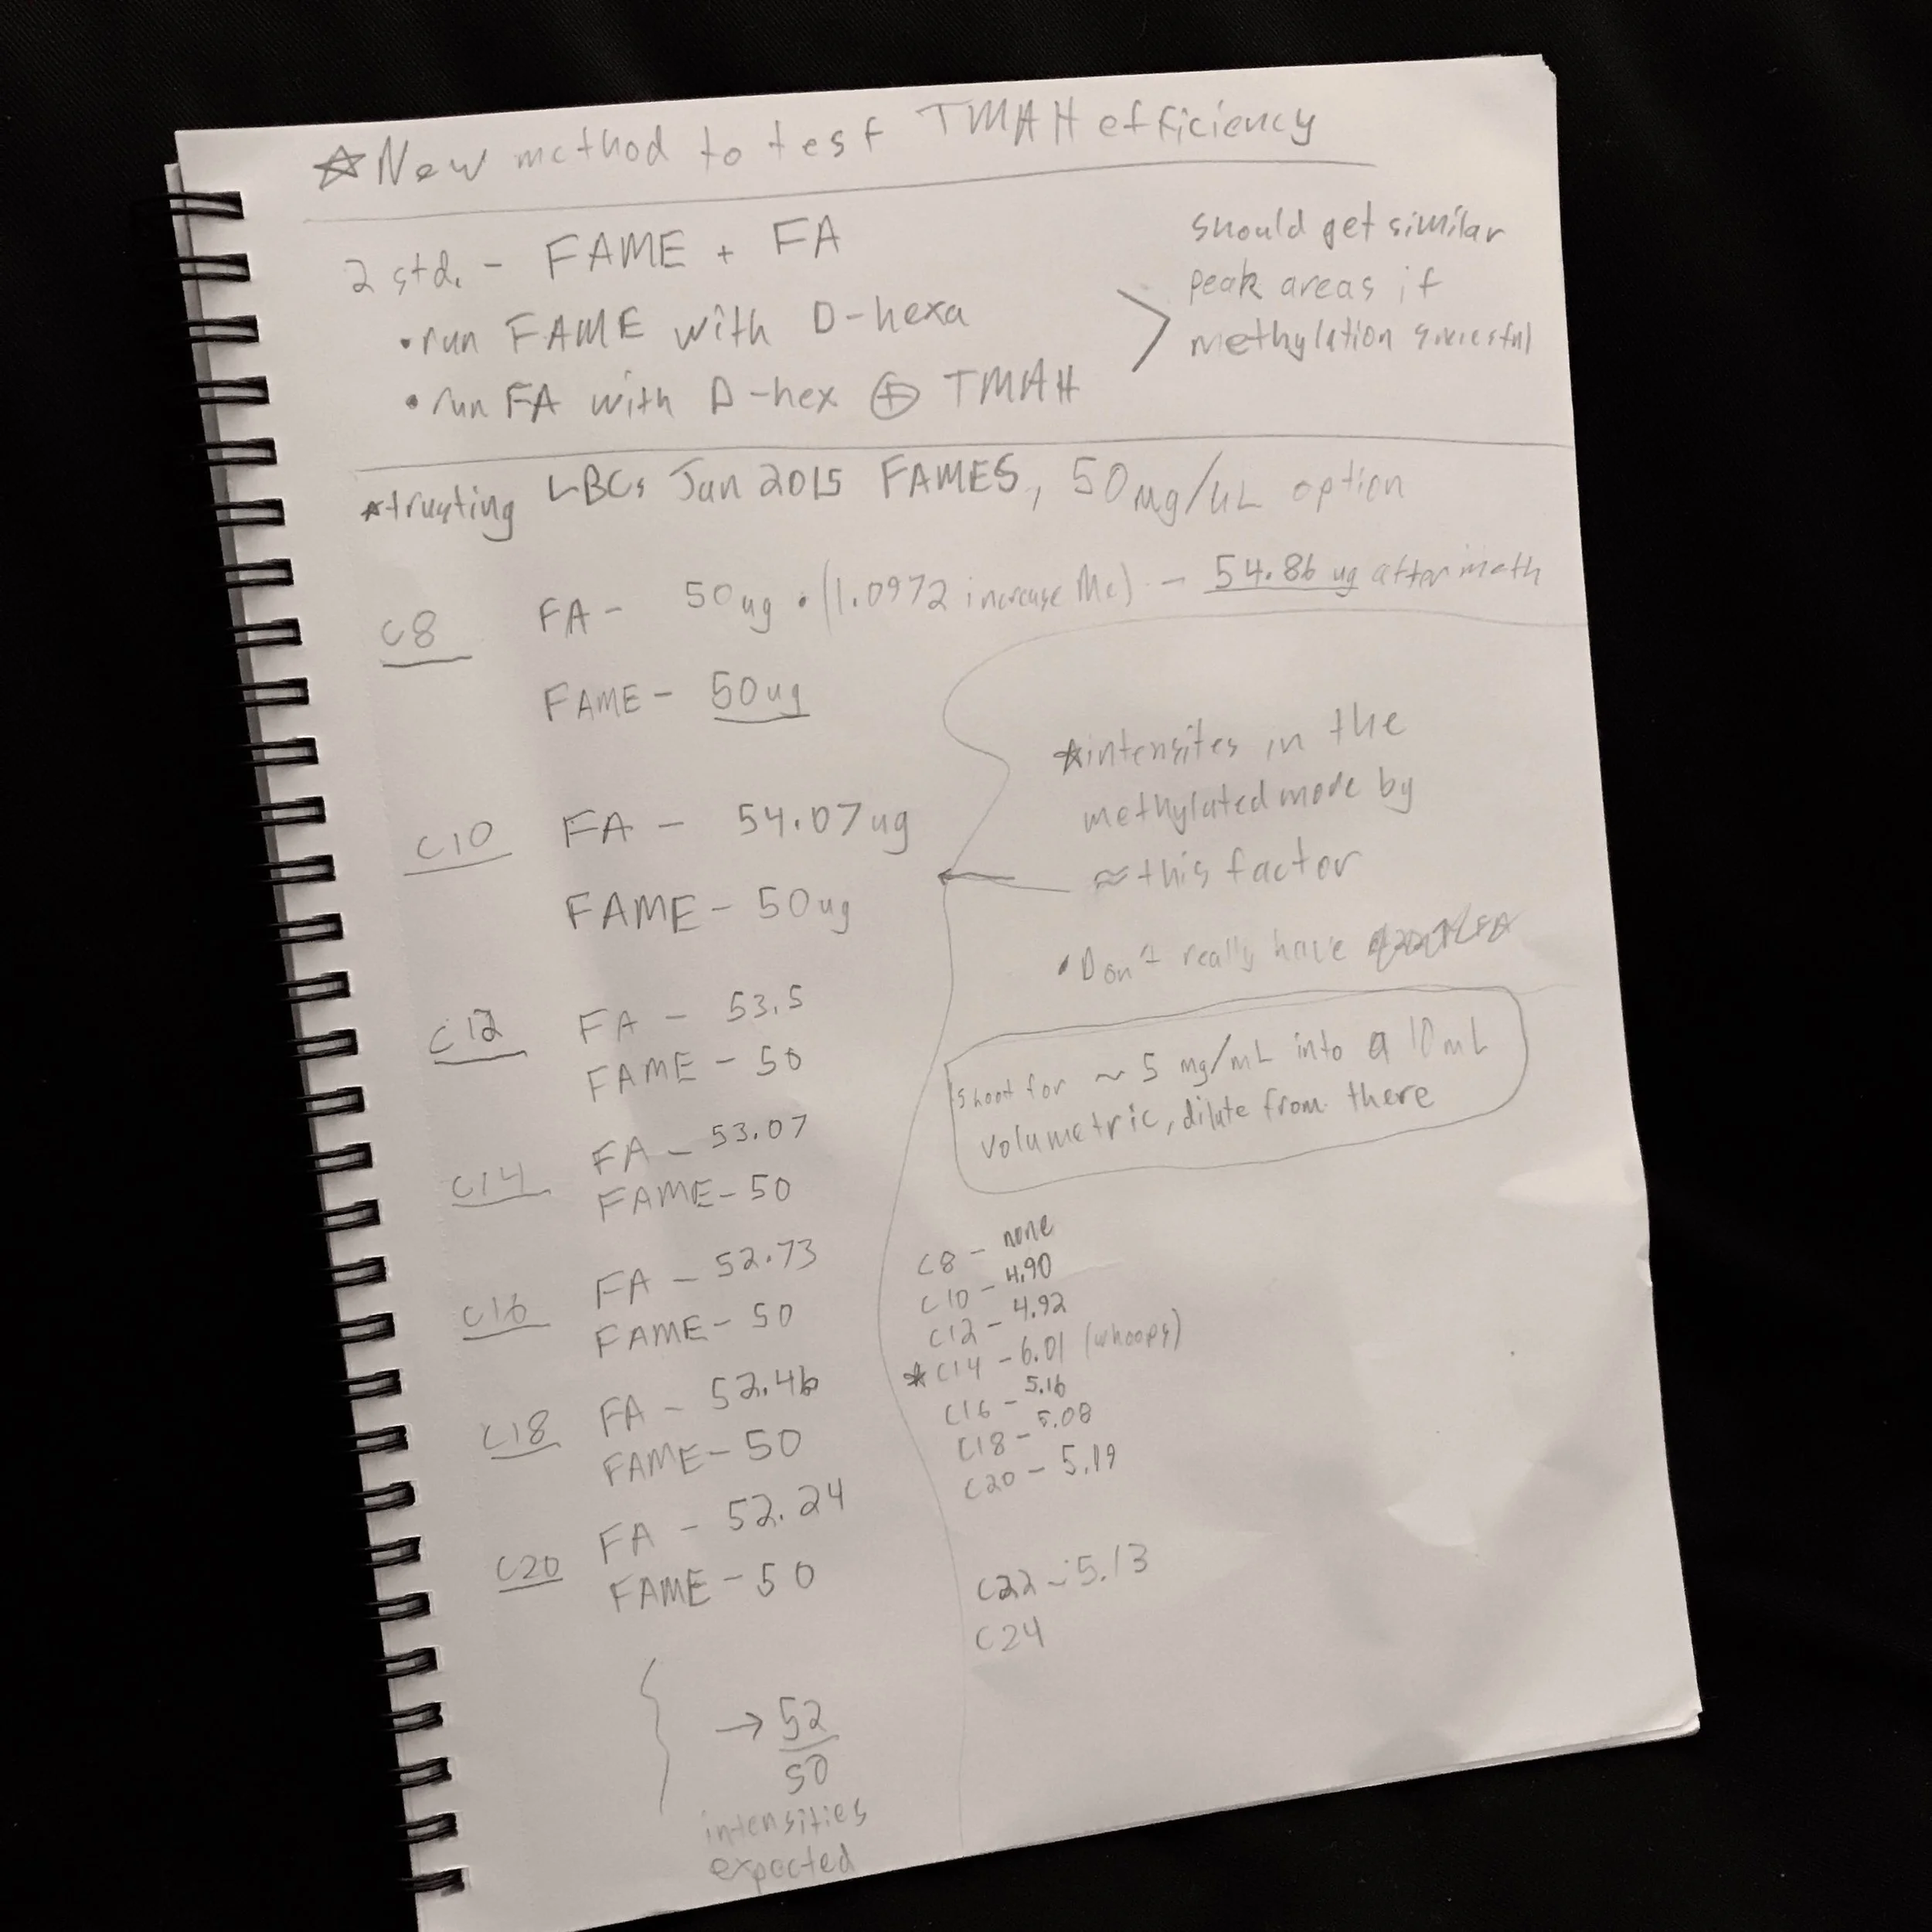 ☆New method to test TMAH efficiency
2 std. - FAME + FA
•run FAME with D-hexa
•run FA with D-hex ⊕ TMAH
> should get similar
peak areas if
methylation
*trusting LBCs Jan 2015 FAMES, 50mg/uL option
C8 FA - 50ug • (1.0972 increase Me) - 54.86 ug after meth
FAME - 50ug
C10 FA - 54.07ug
FAME - 50ug
C12 FA - 53.5
FAME - 50
C14 FA - 53.07
FAME - 50
C16 FA - 52.73
FAME - 50
C18 FA - 52.46
FAME - 50
C20 FA - 52.24
FAME - 50
→ 52
50
intensities
expected
☆intensites in the
methylated more by
≈this factor
•Don't really have
shoot for ~5 mg/mL into a 10mL
volumetric, dilute from there
C8 - none
C10 - 4.90
C12 - 4.92
*C14 - 6.01 (whoops)
C16 - 5.16
C18 - 5.08
C20 - 5.19
C22 - 5.13
C24